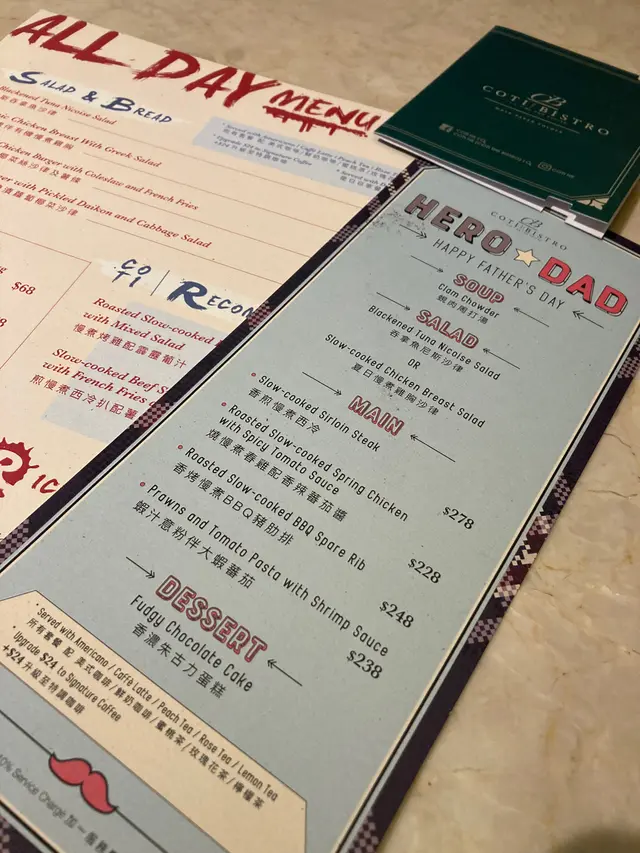 ALL DAY MENU
SALAD & BREAD
Blackened Tuna Nicoise Salad
Chicken Breast With Greek Salad
Chicken Burger with Coleslaw and French Fries
with Pickled Daikon and Cabbage Salad
Upgrade $24 to Signature Coffee
$68
COTI
Roasted Slow-cooked
with Mixed Salad
慢煮烤雞配霹靂葡汁
Slow-cooked Beef
with French Fries
煎慢煮西冷扒配薯
COTI BISTRO
COTI BISTRO
HERO DAD
HAPPY FATHER'S DAY
SOUP
Clam Chowder
蜆肉周打湯
SALAD
Blackened Tuna Nicoise Salad
吞拿魚尼斯沙律
OR
Slow-cooked Chicken Breast Salad
夏日慢煮雞胸沙律
MAIN
Slow-cooked Sirloin Steak
香煎慢煮西冷
$278
Roasted Slow-cooked Spring Chicken
with Spicy Tomato Sauce
燒慢煮春雞配香辣蕃茄醬
$228
Roasted Slow-cooked BBQ Spare Rib
香烤慢煮BBQ豬肋排
$248
Prawns and Tomato Pasta with Shrimp Sauce
蝦汁意粉伴大蝦蕃茄
$238
DESSERT
Fudgy Chocolate Cake
香濃朱古力蛋糕
* Served with Americano / Caffe Latte / Peach Tea / Rose Tea / Lemon Tea
所有套餐 配 美式咖啡/鮮奶咖啡/蜜桃茶/玫瑰花茶/檸檬茶
Upgrade $24 to Signature Coffee
+$24升級至特調咖啡
10% Service Charge 加一服務